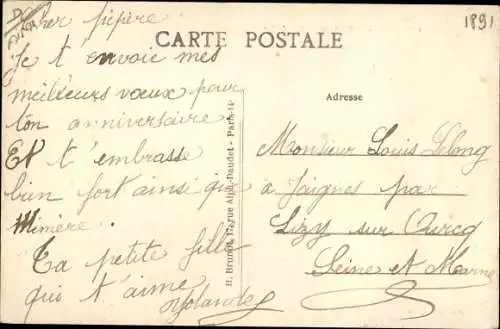 1891
CARTE POSTALE
Cher pépère
Je t'envoie mes
meilleurs vœux pour
ton anniversaire.
Et t'embrasse
bien fort ainsi que
Mimère.
Ta petite fille
qui t'aime
Yolande
H. Brunot, rue Alph.-Daudet - Paris-14
Adresse
Monsieur Louis Lelong
à Jaignes par
Lizy sur Ourcq
Seine et Marne